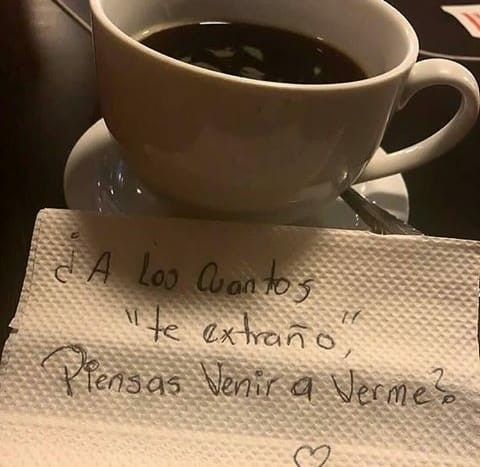 ¿A Los Cuantos
"te extraño",
Piensas Venir a Verme?